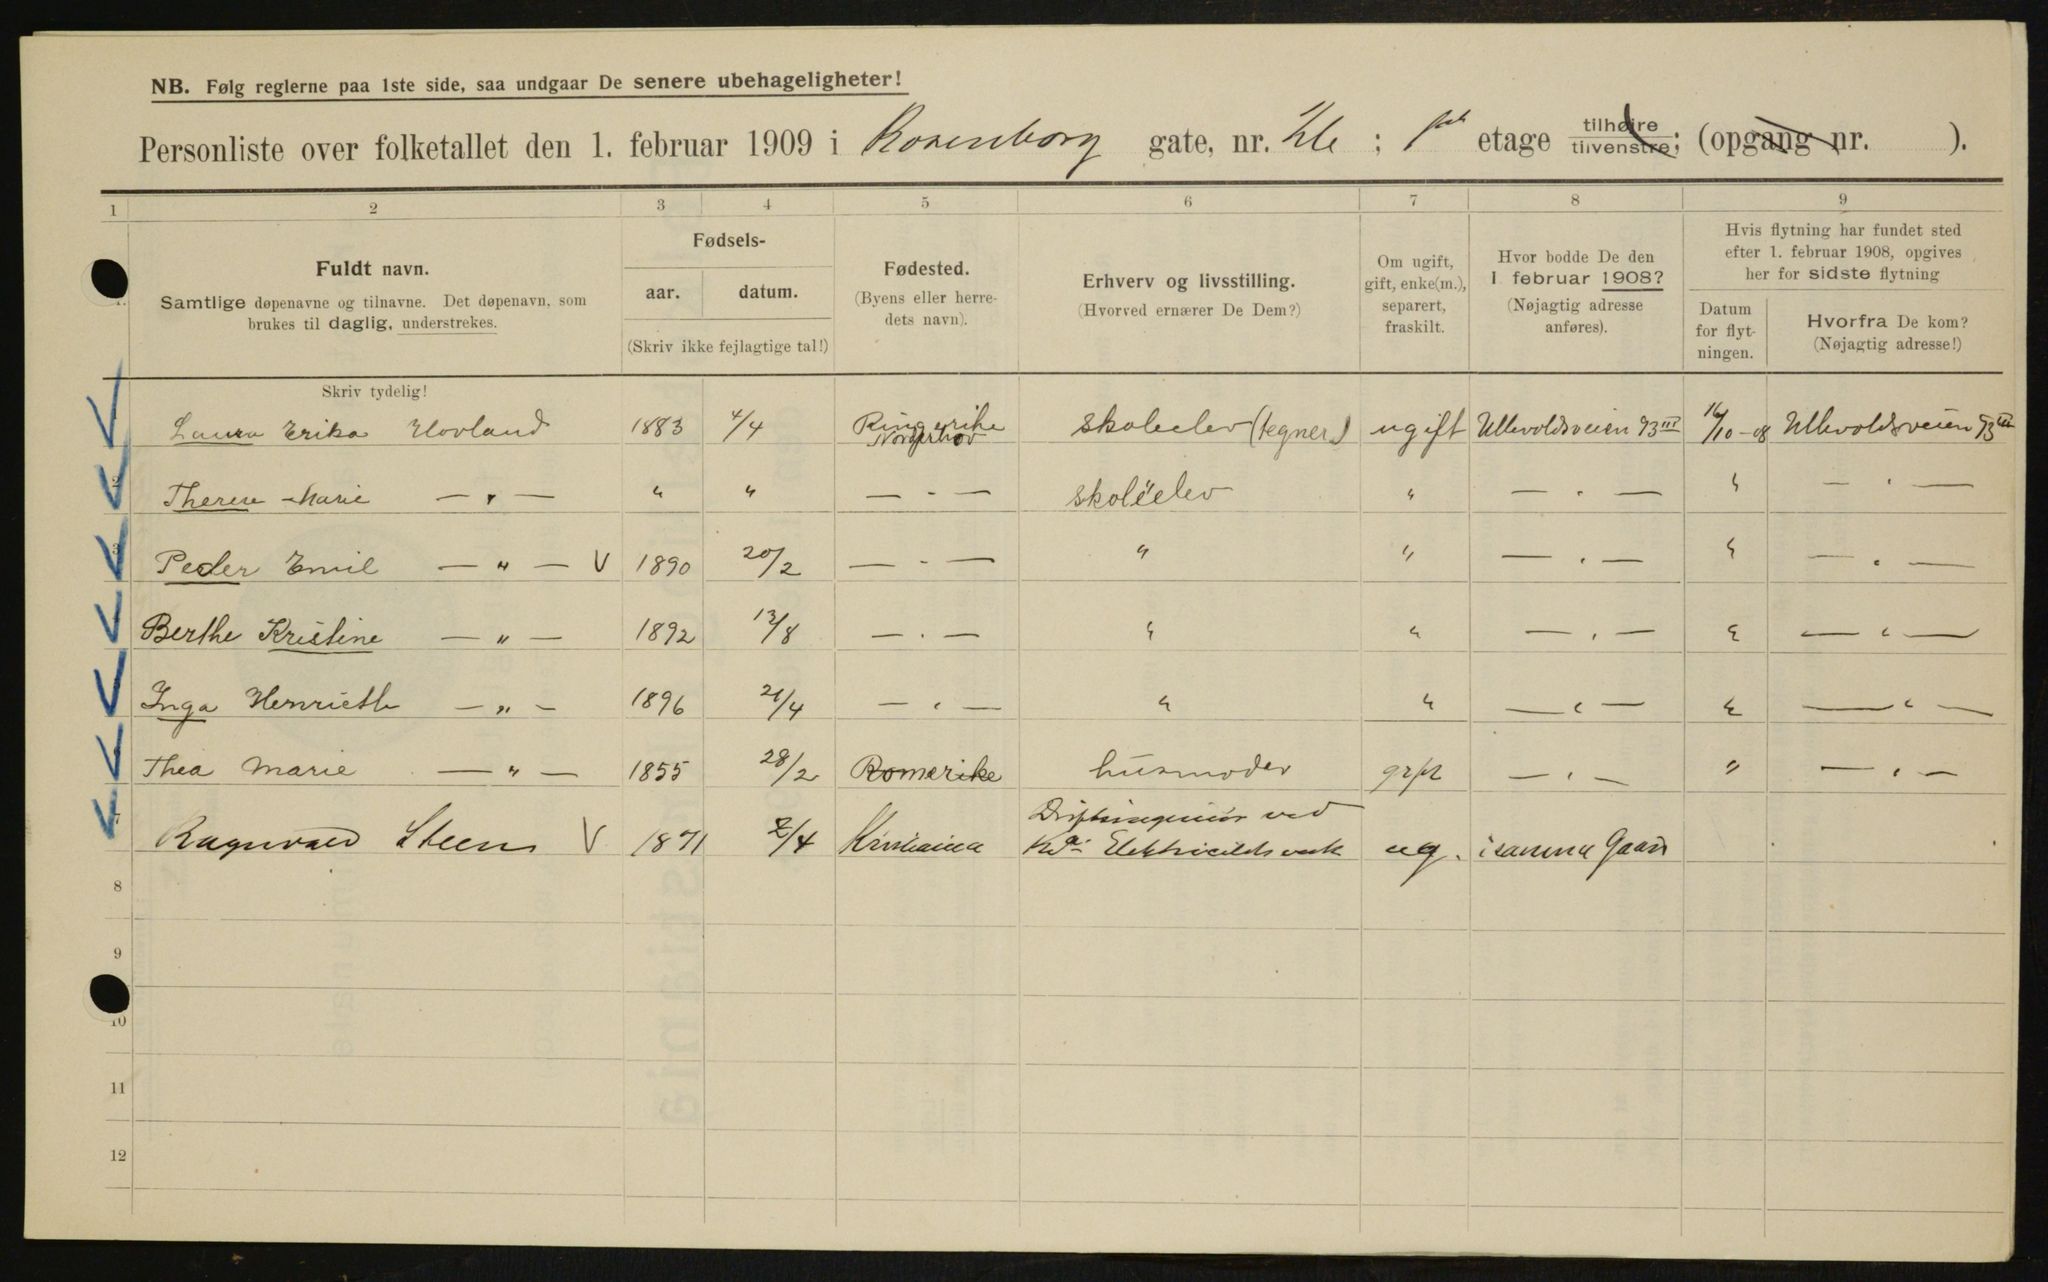 NB. Følg reglerne paa 1ste side, saa undgaar De senere ubehageligheter!
Personliste over folketallet den 1. februar 1909 i Rosenborg gate, nr. ; 1ste etage tilhøire tilvenstre; (opgang nr. ).
1 2 3 4 5 6 7 8 9
Fuldt navn.
Samtlige døpenavne og tilnavne. Det døpenavn, som
brukes til daglig, understrekes.
Fødsels-
aar. datum.
(Skriv ikke fejlagtige tal!)
Fødested.
(Byens eller herre-
dets navn).
Erhverv og livsstilling.
(Hvorved ernærer De Dem?)
Om ugift,
gift, enke(m.),
separert,
fraskilt.
Hvor bodde De den
1 februar 1908?
(Nøjagtig adresse
anføres).
Hvis flytning har fundet sted
efter 1. februar 1908, opgives
her for sidste flytning
Datum
for flyt-
ningen.
Hvorfra De kom?
(Nøjagtig adresse!)
Skriv tydelig!
Laura Erika Hovland 1883 4/4 Ringerike Norderhov skoleelev (tegner) ugift Ullevoldsveien 73 III 16/10-08 Ullevoldsveien 73 III
2 Therese Marie — " — " " — " — skoleelev " — " — " — " —
3 Peder Emil — " — V 1890 20/2 — " — " " — " — " — " —
Berthe Kristine — " — 1892 13/8 — " — " " — " — " — " —
Inga Henriette — " — 1896 21/4 — " — " " — " — " — " —
6 Thea Marie — " — 1855 28/2 Romerike husmoder — " — " — " —
7 Ragnvald Steen V 1871 2/4 Kristiania Driftsingeniør ved Kra Elektricitetsverk ug. i samme Gaard
8
9
10
11
12